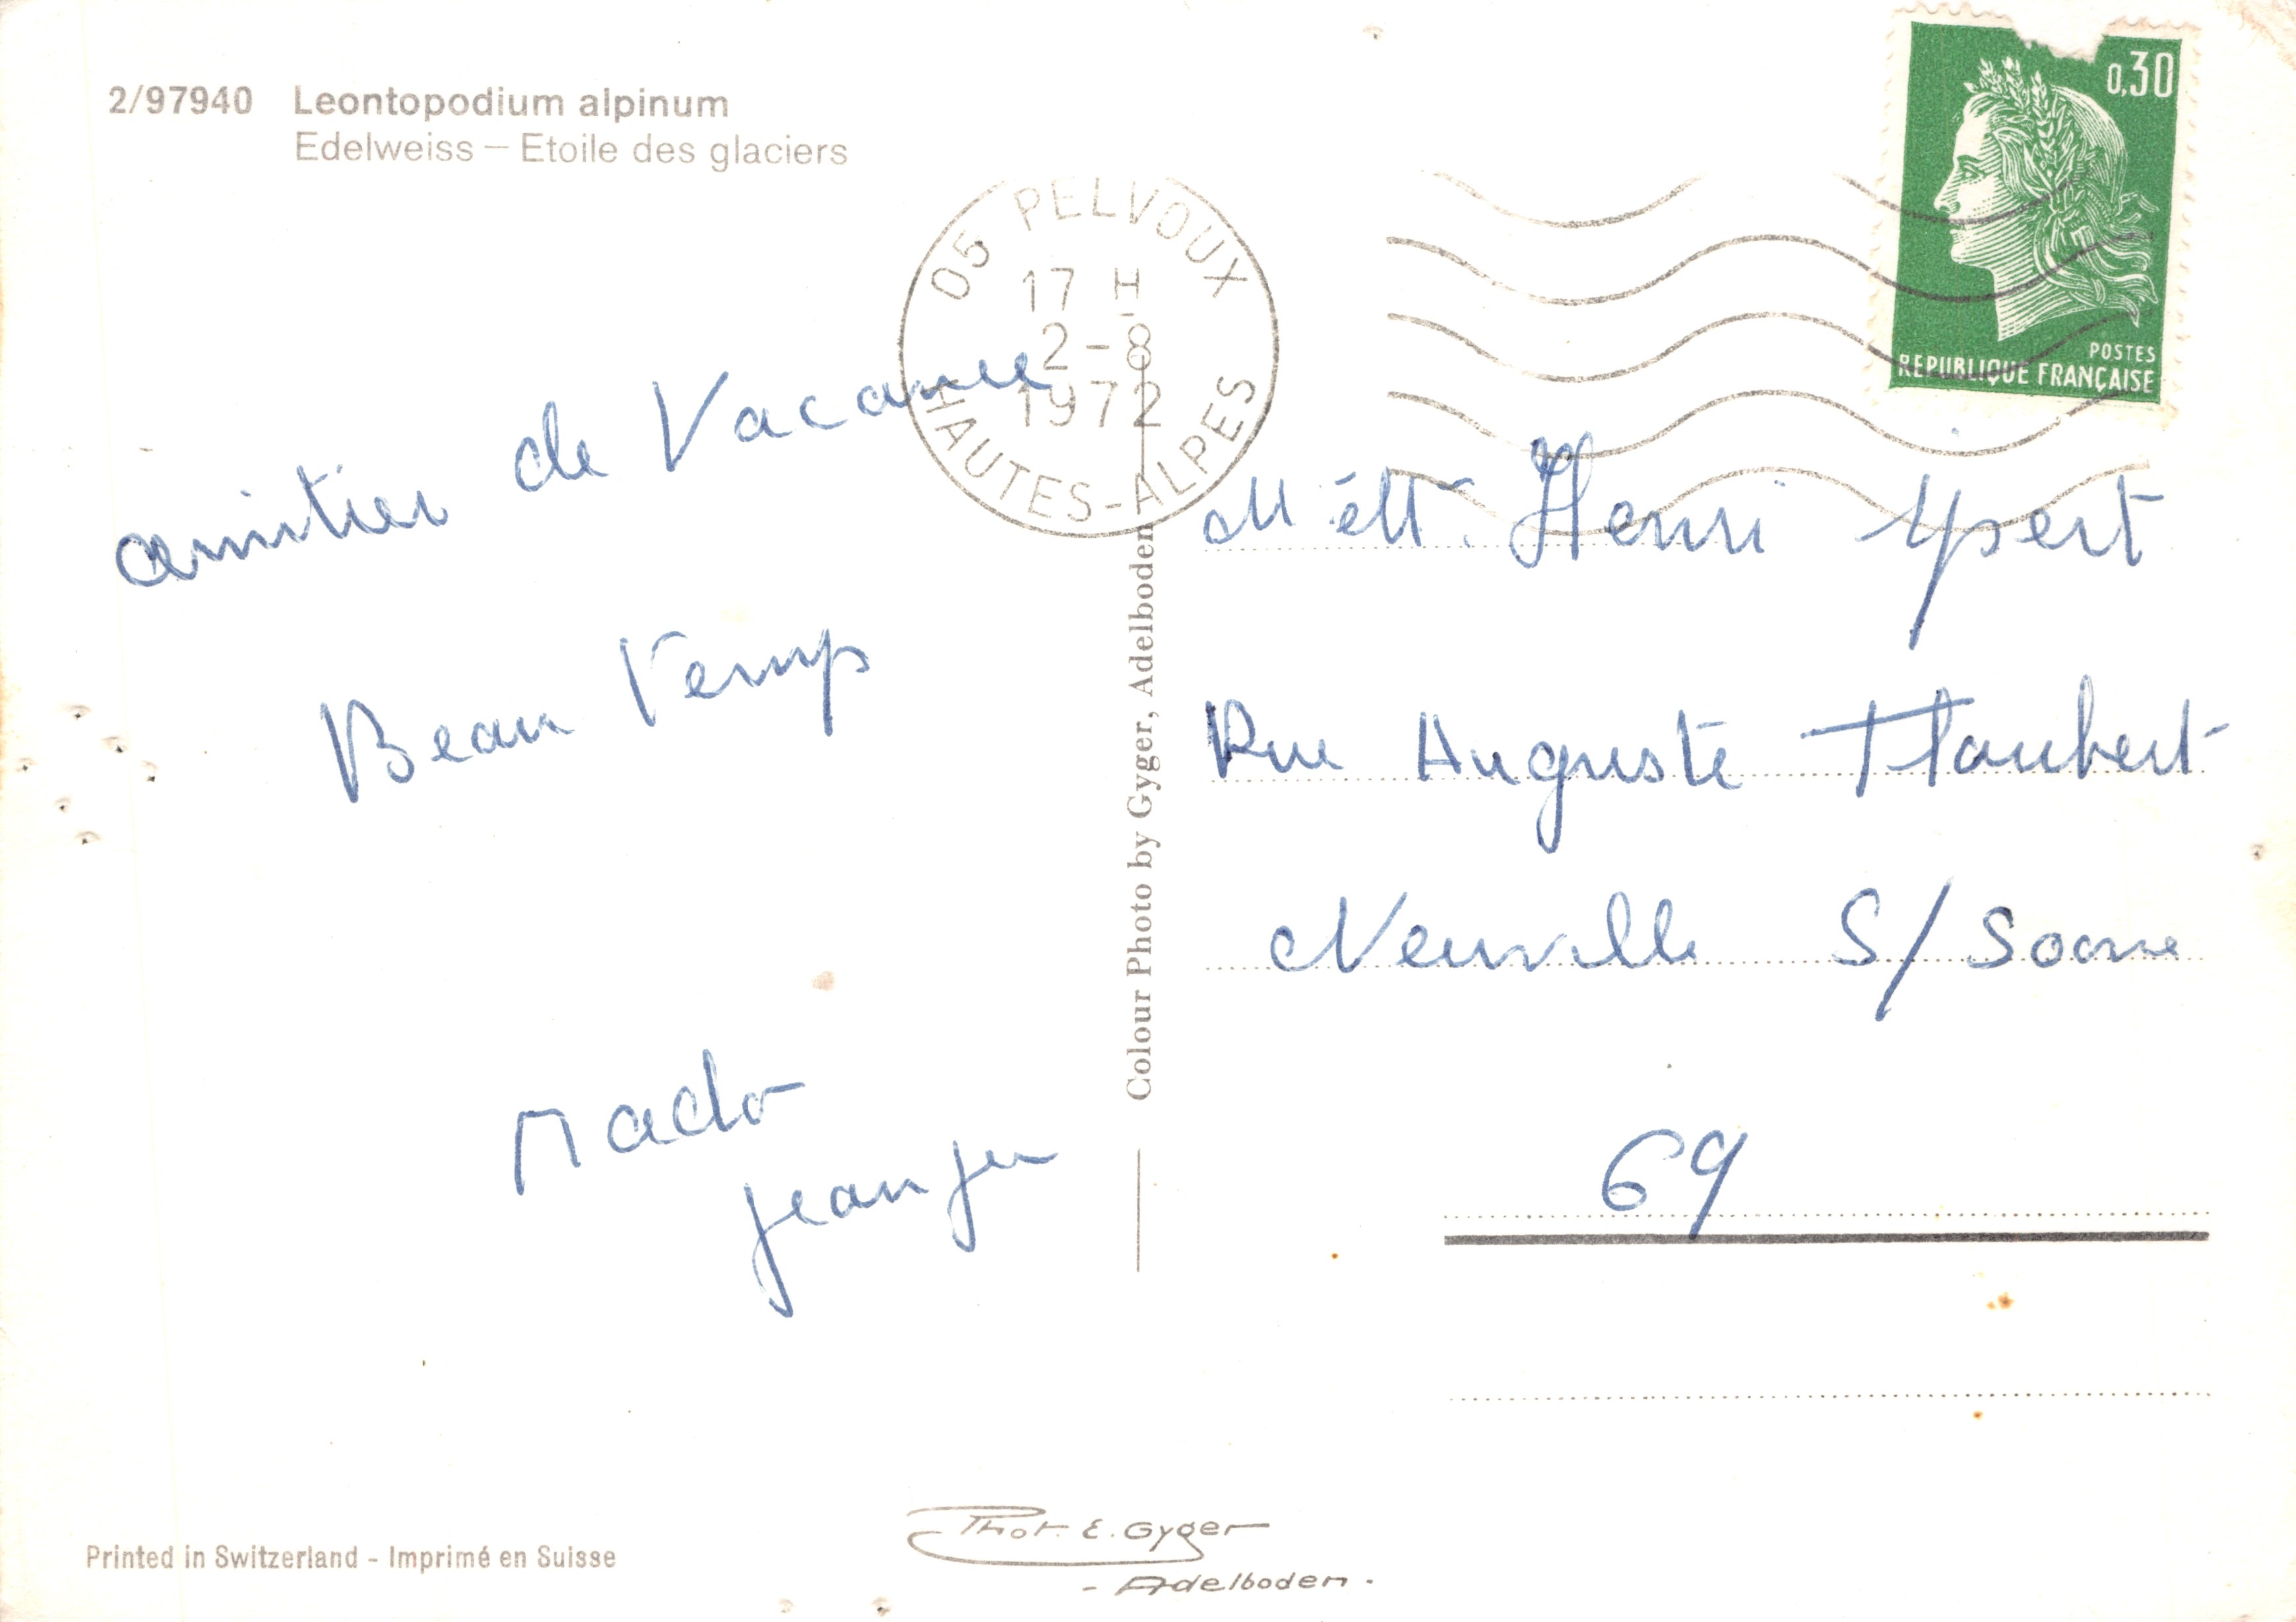 2/97940 Leontopodium alpinum
Edelweiss – Etoile des glaciers
05 PELVOUX
17 H
2-8
1972
HAUTES-ALPES
0,30
POSTES
REPUBLIQUE FRANÇAISE
amitier de Vacance
Beau Temp
Mado
jean
Colour Photo by Gyger, Adelboden
M et Henri Ypert
Rue Auguste Flaubert
Neuville S/ Soane
69
Printed in Switzerland - Imprimé en Suisse
Phot. E. Gyger
- Adelboden -